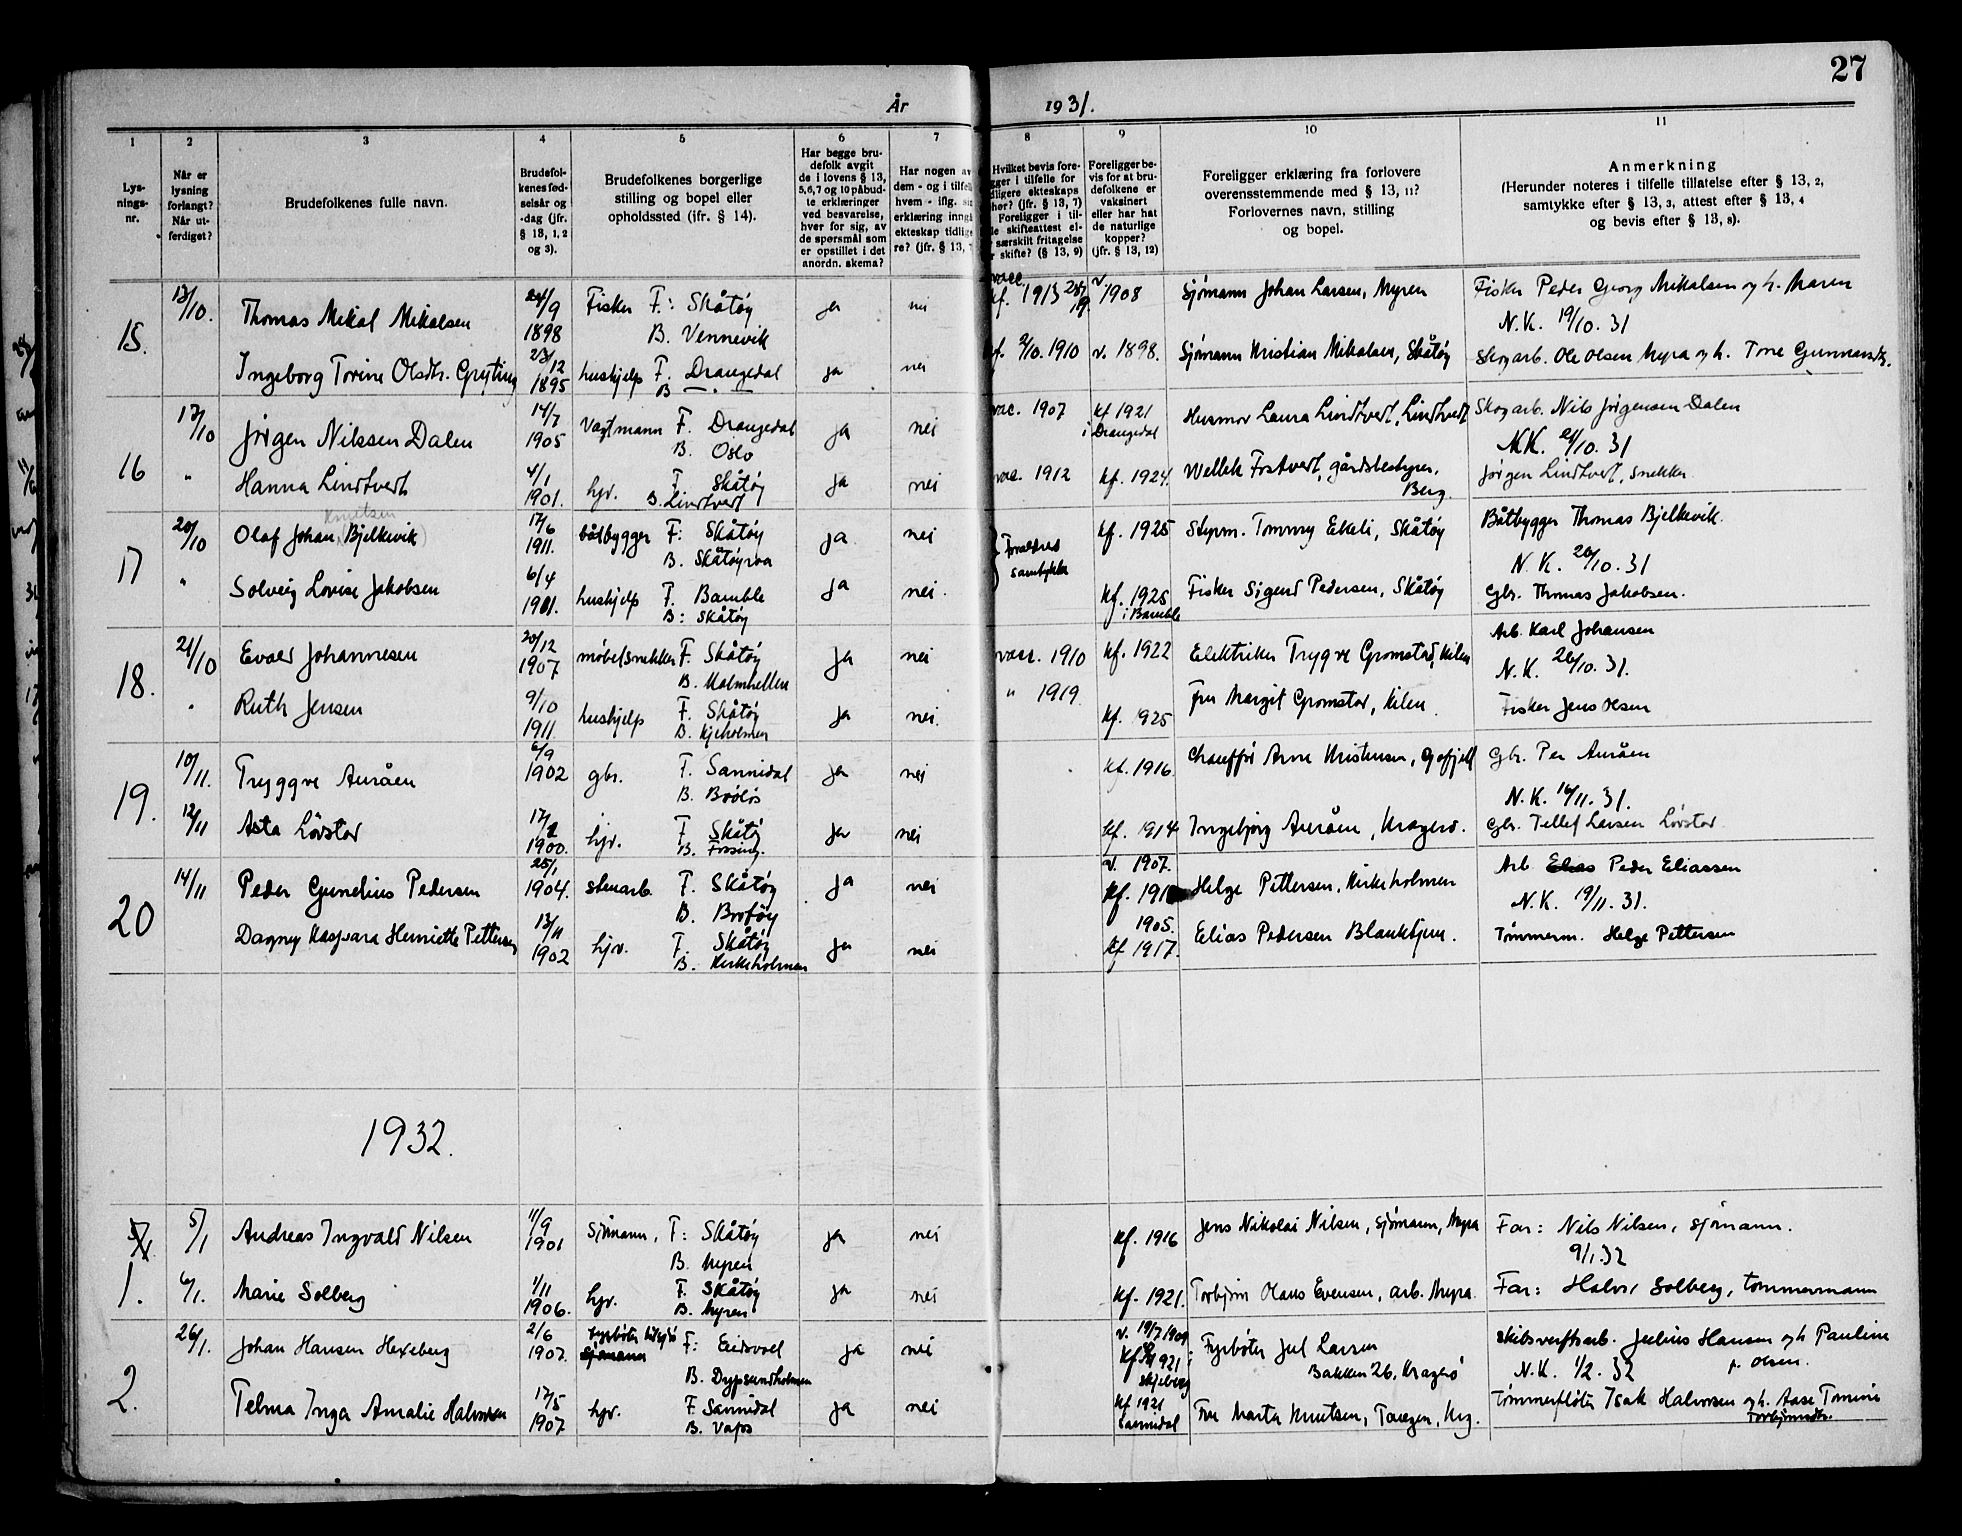 27
År 1931.
1 2 3 4 5 6 7 8 9 10 11
Lys-
nings-
nr.
Når er
lysning
forlangt?
Når ut-
ferdiget?
Brudefolkenes fulle navn.
Brudefol-
kenes fød-
selsår og
-dag (jfr.
§ 13, 1, 2
og 3).
Brudefolkenes borgerlige
stilling og bopel eller
opholdssted (jfr. § 14).
Har begge bru-
defolk avgit
de i lovens § 13,
5,6,7 og 10 påbud-
te erklæringer
ved besvarelse,
hver for sig, av
de spørsmål som
er opstillet i det
anordn. skema?
Har nogen av
dem - og i tilfelle
hvem - iflg. sin
erklæring inngå
ekteskap tidlige
re? (jfr. § 13, 7
Hvilket bevis fore-
gger i tilfelle for
dligere ekteskaps
hør? (jfr. § 13, 7)
Foreligger i til-
le skifteattest el-
særskilt fritagelse
r skifte? (§ 13, 9)
Foreligger be-
vis for at bru-
defolkene er
vaksinert
eller har hat
de naturlige
kopper?
(jfr. § 13, 12)
Foreligger erklæring fra forlovere
overensstemmende med § 13, 11?
Forlovernes navn, stilling
og bopel.
Anmerkning
(Herunder noteres i tilfelle tillatelse efter § 13, 2,
samtykke efter § 13, 3, attest efter § 13, 4
og bevis efter § 13, 8).
15.
13/10. Thomas Mikal Mikalsen 24/9 1898 Fisker F: Skåtøy ja nei kf. 1913 v 1908 Sjømann Johan Larsen, Myren Fisker Peder Georg Mikalsen og h. Maren
B. Vennevik N.K. 19/10. 31
Ingeborg Torine Olsdtr. Gryting 23/12 1895 hushjelp F. Drangedal ja nei kf. 2/10. 1910 v. 1898. Sjømann Kristian Mikalsen, Skåtøy Skogarb. Ole Olsen Myra og h. Tone Gunnarsdtr.
B — . —
16
17/10 Jørgen Nilssen Dalen 14/7 1905 Vagtmann F. Drangedal ja nei vac. 1907 kf 1921 i Drangedal Husmor Laura Lindtveit, Lindtveit Skogarb. Nils Jørgensen Dalen
B. Oslo N.K. 21/10. 31
" Hanna Lindtveit 4/1 1901. hjv. F. Skåtøy ja nei vac. 1912 kf. 1924. gårdsbestyrer, Berg Jørgen Lindtveit, snekker
B. Lindtveit
17
20/10 Olaf Johan Knutsen Bjelkevik 17/6 1911. båtbygger F: Skåtøy ja nei Forældres samtykke kf. 1925 Styrm. Tommy Eikeli, Skåtøy Båtbygger Thomas Bjelkevik.
B. Skåtøyroa N.K. 20/10. 31
" Solveig Lovise Jakobsen 6/4 1911. hushjelp F. Bamble ja nei. kf. 1925 i Bamble Fisker Sigurd Pedersen, Skåtøy Gbr. Thomas Jakobsen.
B: Skåtøy
18.
21/10 Evald Johannesen 20/12 1907. møbelsnekker F. Skåtøy ja nei vacc. 1910 kf. 1922 Elektriker Trygve Gromstad, Kilen Arb. Karl Johansen
B. Malmhellen N.K. 26/10. 31.
" Ruth Jensen 9/10 1911. hushjelp F. Skåtøy ja nei. " 1919. kf. 1925 Fru Margit Gromstad, Kilen. Fisker Jens Olsen
B. Kjeholmen
19.
10/11. Tryggve Auråen 6/9 1902 gbr. F. Sannidal ja nei kf. 1916. Chauffør Arne Kristensen, Gofjell Gbr. Per Auråen
B. N.K. 16/11. 31.
12/11 Asta Lövstad 17/2 1900. hjv. F Skåtøy ja nei kf. 1914 Ingebjørg Auråen, Kragerø. Gbr. Tellef Larsen Lövstad
B. Fossing.
20
14/11 Peder Gundius Pedersen 25/1 1904. stenarb. F. Skåtøy ja nei v. 1907. Helge Pettersen, Kirkeholmen Arb Elias Peder Eliassen
B. Broføy N.K. 19/11. 31.
Dagney Kaspara Henriette Pettersen 13/11 1902 hjv. F. Skåtøy ja nei 1905. kf 1917. Elias Pedersen Blankkjern. Tømmerm. Helge Pettersen
B. Kirkeholmen
1932.
1.
5/1 Andreas Ingvald Nilsen 11/9 1901 Sjømann, F: Skåtøy ja nei kf. 1916 Jens Nikolai Nilsen, sjømann, Myra Far: Nils Nilsen, sjømann.
B. Myren 9/1.32
6/1. Marie Solberg 1/11 1906. hjv. F. Skåtøy ja nei kf. 1921. Torbjørn Olaus Evensen, arb. Myra. Far: Halvor Solberg, tømmermann
B. Myren
2.
26/1. Johan Hansen Hexeberg 2/6 1907. fyrbøter sjømann F: Eidsvoll ja nei v. 19/7 1909 kf 1921 i Skjeberg Fyrbøter Jul Larsen skibsverftsarb. Julius Hansen og h Pauline f. Olsen.
B. Dypsundholmen Bakken 26, Kragerø N.K. 1/2. 32
Telma Inga Amalie Halvorsen 17/5 1907. hjv. F. Sannidal ja nei kf 1921 Sannidal Fru Marta Knutsen, Tangen, Krg. Tømmerfløter Isak Halvorsen og h. Aase Tomine Torbjørnsdtr.
B. Vafos